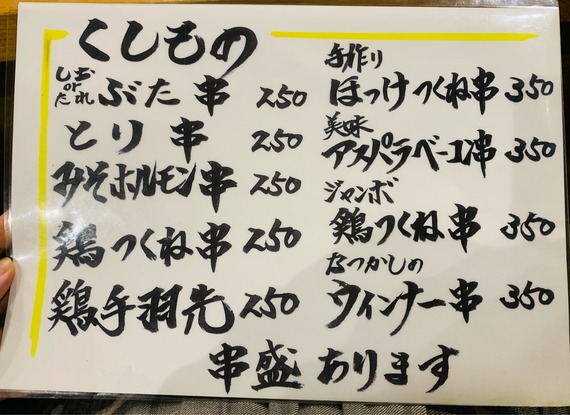 くしもの
しお
or
たれ
ぶた串 250
とり串 250
みそホルモン串 250
鶏つくね串 250
鶏手羽先 250
手作り
ほっけつくね串 350
美味
アスパラベーコン串 350
ジャンボ
鶏つくね串 350
なつかしの
ウィンナー串 350
串盛あります